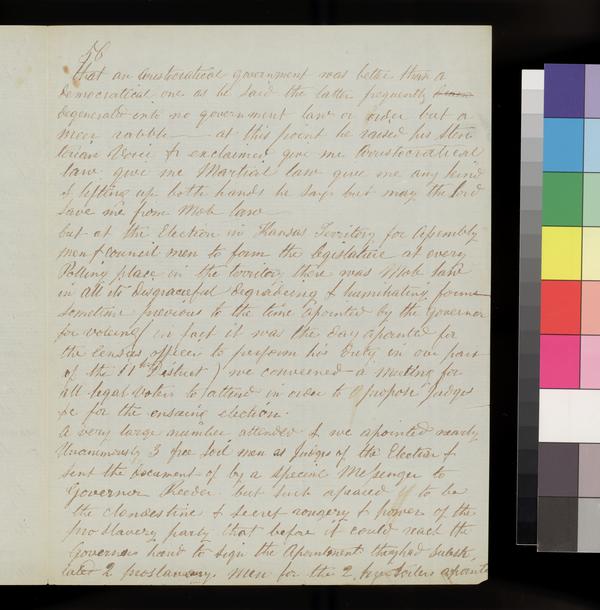 58
that an aristocratical government was better than a
democratical one as he said the latter frequently
degenerate into no government law or order but a
meer rabble — at this point he raised his Sten
torian Voice & exclaimed give me Aristocratical
law give me Martial law give me any kind
& lifting up both hands he says but may the Lord
save me from Mob law
but at the Election in Kansas Territory for Assembly
men & council men to form the legislature at every
Polling place in the territory there was Mob law
in all its disgraceful degradeing & humiliating forms
sometime previous to the time apointed by the Governor
for voteing (in fact it was the day apointed for
the Census officer to perform his duty in our part
of the 11th District) we convened a meeting for
all legal voters to attend in order to propose Judges
&c for the ensueing election.
A very large number attended & we apointed nearly
3 free Soil men as Judges of the Election &
sent the document of by a special Messenger to
Governor Reeder but such apeared to be
the clandestine & secret & power of the
proslavery party that before it could reach the
Governors hand to sign the Apointment they had Substi
tuted 2 proslavery men for the 2 free Soilers apointed